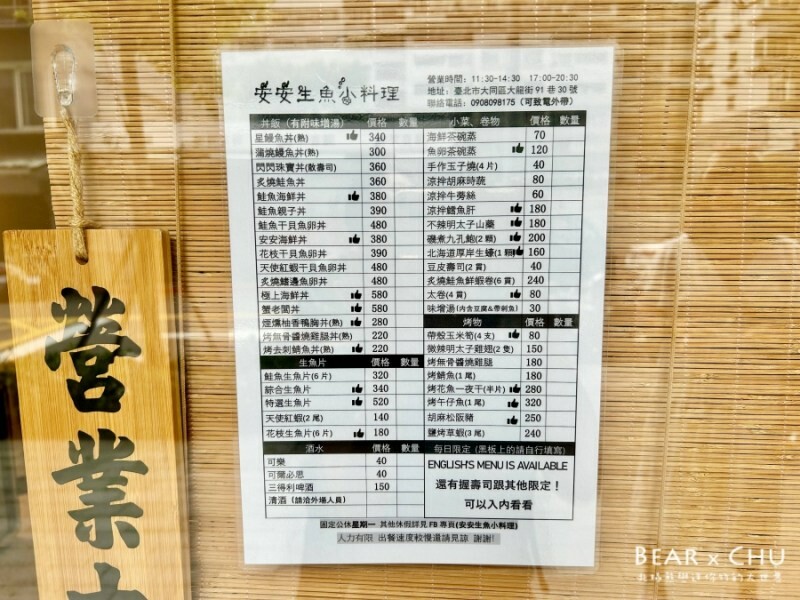 安安生魚小料理
營業時間：11:30-14:30 17:00-20:30
地址：臺北市大同區大龍街91巷30號
聯絡電話：0908098175（可致電外帶）
丼飯（有附味增湯） 價格 數量
星鰻魚丼(熟) 340
蒲燒鰻魚丼(熟) 300
閃閃珠寶丼(散壽司) 360
炙燒鮭魚丼 360
鮭魚海鮮丼 380
鮭魚親子丼 390
鮭魚干貝魚卵丼 480
安安海鮮丼 380
花枝干貝魚卵丼 390
天使紅蝦干貝魚卵丼 480
炙燒鰭邊魚卵丼 480
極上海鮮丼 580
蟹老闆丼 580
煙燻柚香鴨胸丼(熟) 280
烤無骨醬燒雞腿丼(熟) 220
烤去刺鯖魚丼(熟) 220
生魚片 價格 數量
鮭魚生魚片(6片) 320
綜合生魚片 340
特選生魚片 520
天使紅蝦(2尾) 140
花枝生魚片(6片) 180
酒水 價格 數量
可樂 40
可爾必思 40
三得利啤酒 150
清酒（請洽外場人員）
小菜、卷物 價格 數量
海鮮茶碗蒸 70
魚卵茶碗蒸 120
手作玉子燒(4片) 40
涼拌胡麻時蔬 80
涼拌牛蒡絲 60
涼拌鱈魚肝 180
不辣明太子山藥 180
磯煮九孔鮑(2顆) 200
北海道厚岸生蠔(1顆) 160
豆皮壽司(2貫) 40
炙燒鮭魚鮮蝦卷(6貫) 240
太卷(4貫) 80
味增湯(內含豆腐&帶刺魚) 30
烤物 價格 數量
帶殼玉米筍(4支) 80
微辣明太子雞翅(2隻) 150
烤無骨醬燒雞腿 180
烤鯖魚(1尾) 180
烤花魚一夜干(半片) 280
烤午仔魚(1尾) 320
胡麻松阪豬 250
鹽烤草蝦(3尾) 240
每日限定（黑板上的請自行填寫）
ENGLISH'S MENU IS AVAILABLE
還有握壽司跟其他限定！
可以入內看看
固定公休星期一 其他休假詳見FB專頁(安安生魚小料理)
人力有限 出餐速度較慢還請見諒 謝謝!
營業
BEAR x CHU